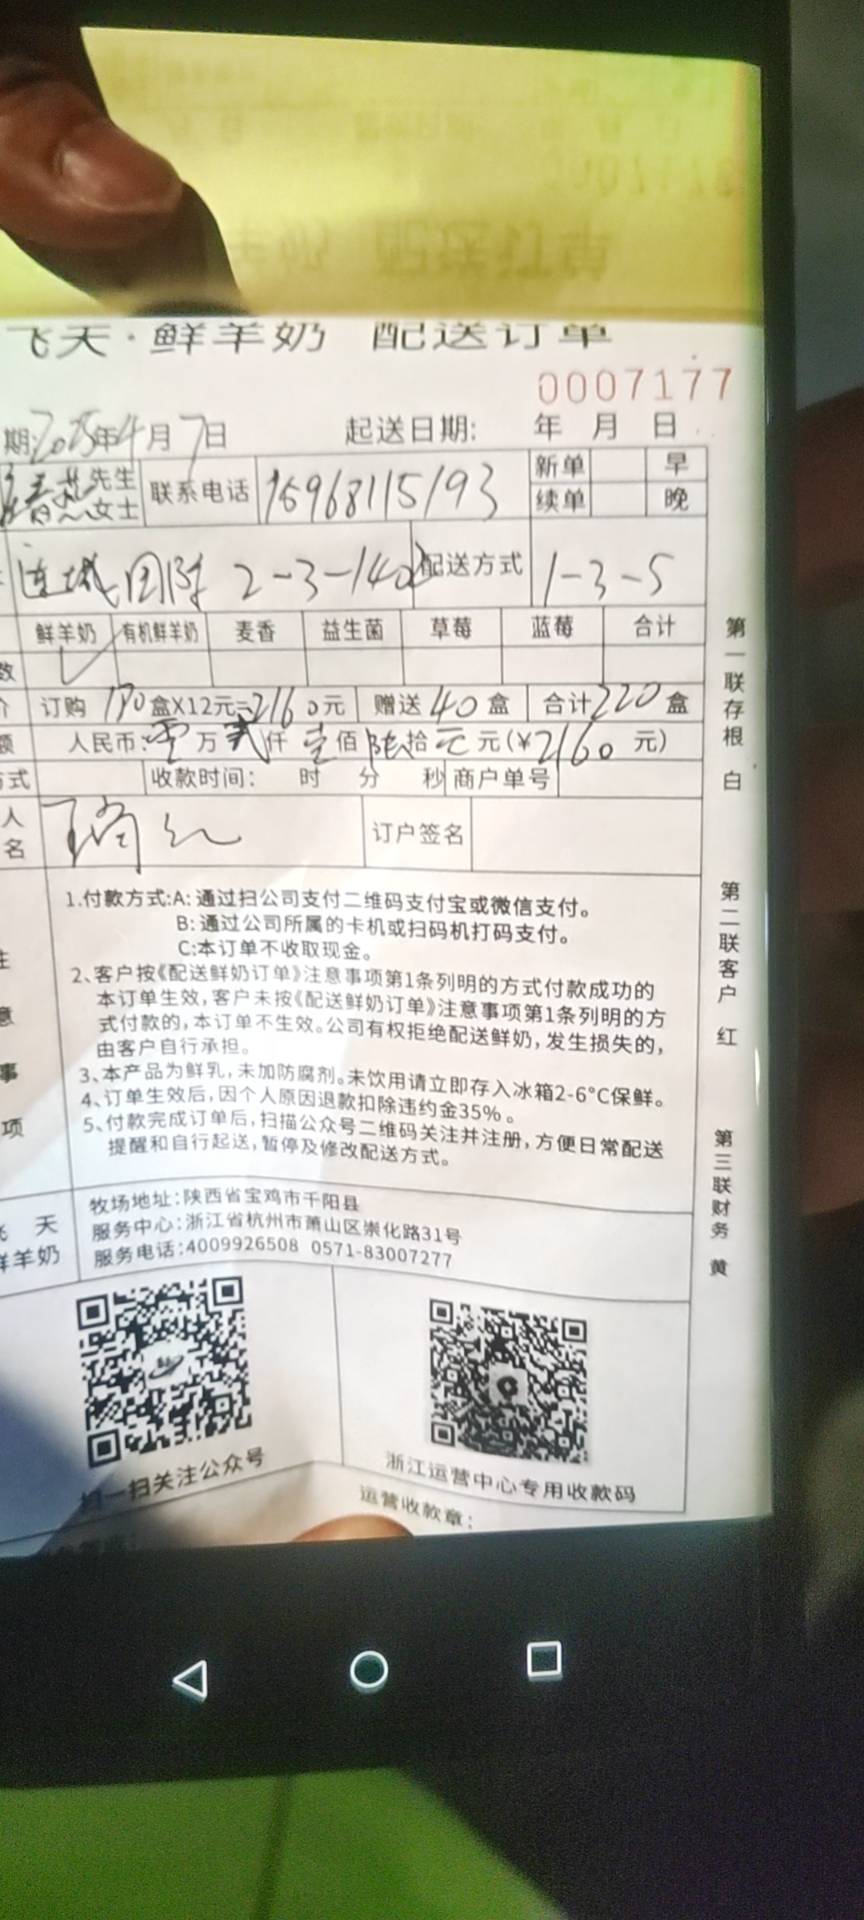 飞天·鲜羊奶 配送订单
0007177
期:2025年4月7日 起送日期: 年 月 日
春燕 先生 女士 联系电话 15968115193 新单 早
续单 晚
连城国际 2-3-1402 配送方式 1-3-5
鲜羊奶 有机鲜羊奶 麦香 益生菌 草莓 蓝莓 合计
数 ✓
订购 180盒X12元=2160元 赠送 40盒 合计220盒
额 人民币:零万贰仟壹佰陆拾元元(¥2160元)
方式 收款时间: 时 分 秒 商户单号
人
名 订户签名
1.付款方式:A:通过扫公司支付二维码支付宝或微信支付。
B:通过公司所属的卡机或扫码机打码支付。
C:本订单不收取现金。
2、客户按《配送鲜奶订单》注意事项第1条列明的方式付款成功的
本订单生效,客户未按《配送鲜奶订单》注意事项第1条列明的方
式付款的,本订单不生效。公司有权拒绝配送鲜奶,发生损失的,
由客户自行承担。
3、本产品为鲜乳,未加防腐剂。未饮用请立即存入冰箱2-6°C保鲜。
4、订单生效后,因个人原因退款扣除违约金35%。
5、付款完成订单后,扫描公众号二维码关注并注册,方便日常配送
提醒和自行起送,暂停及修改配送方式。
注
意
事
项
飞天
鲜羊奶
牧场地址:陕西省宝鸡市千阳县
服务中心:浙江省杭州市萧山区崇化路31号
服务电话:4009926508 0571-83007277
扫一扫关注公众号
浙江运营中心专用收款码
运营收款章:
第一联存根 白
第二联客户 红
第三联财务 黄